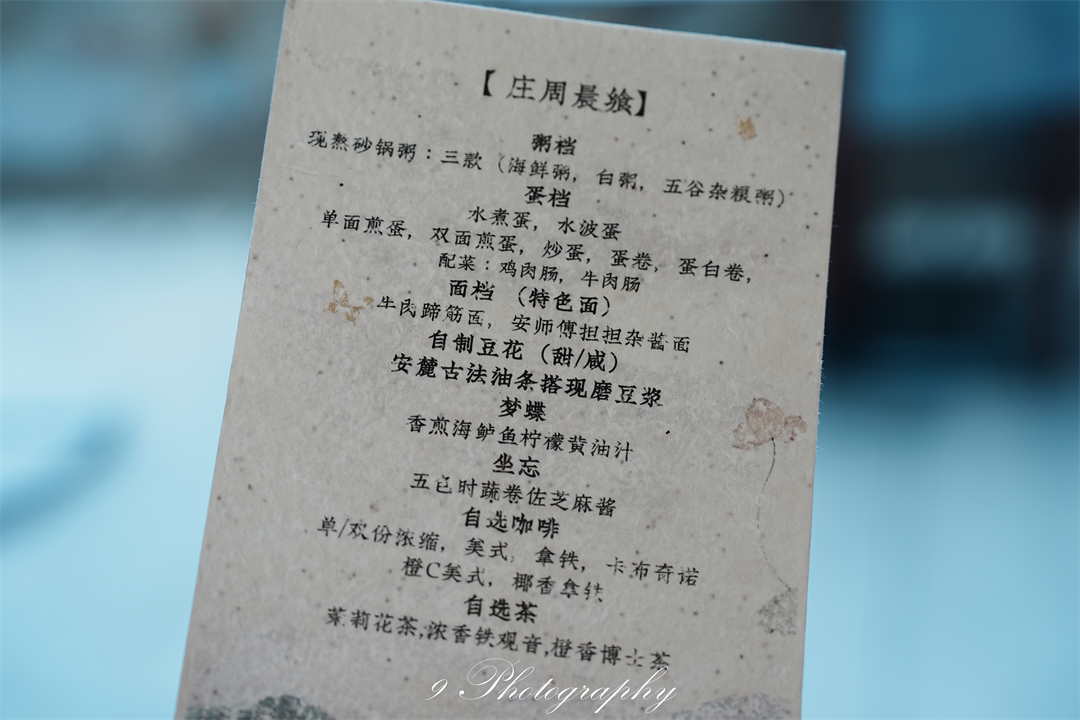 【庄周晨飨】
粥档
现熬砂锅粥：三款（海鲜粥，白粥，五谷杂粮粥）
蛋档
水煮蛋，水波蛋
单面煎蛋，双面煎蛋，炒蛋，蛋卷，蛋白卷，
配菜：鸡肉肠，牛肉肠
面档（特色面）
牛肉蹄筋面，安师傅担担杂酱面
自制豆花（甜/咸）
安麓古法油条搭现磨豆浆
梦蝶
香煎海鲈鱼柠檬黄油汁
坐忘
五色时蔬卷佐芝麻酱
自选咖啡
单/双份浓缩，美式，拿铁，卡布奇诺
橙C美式，椰香拿铁
自选茶
茉莉花茶,浓香铁观音,橙香博士茶
9 Photography